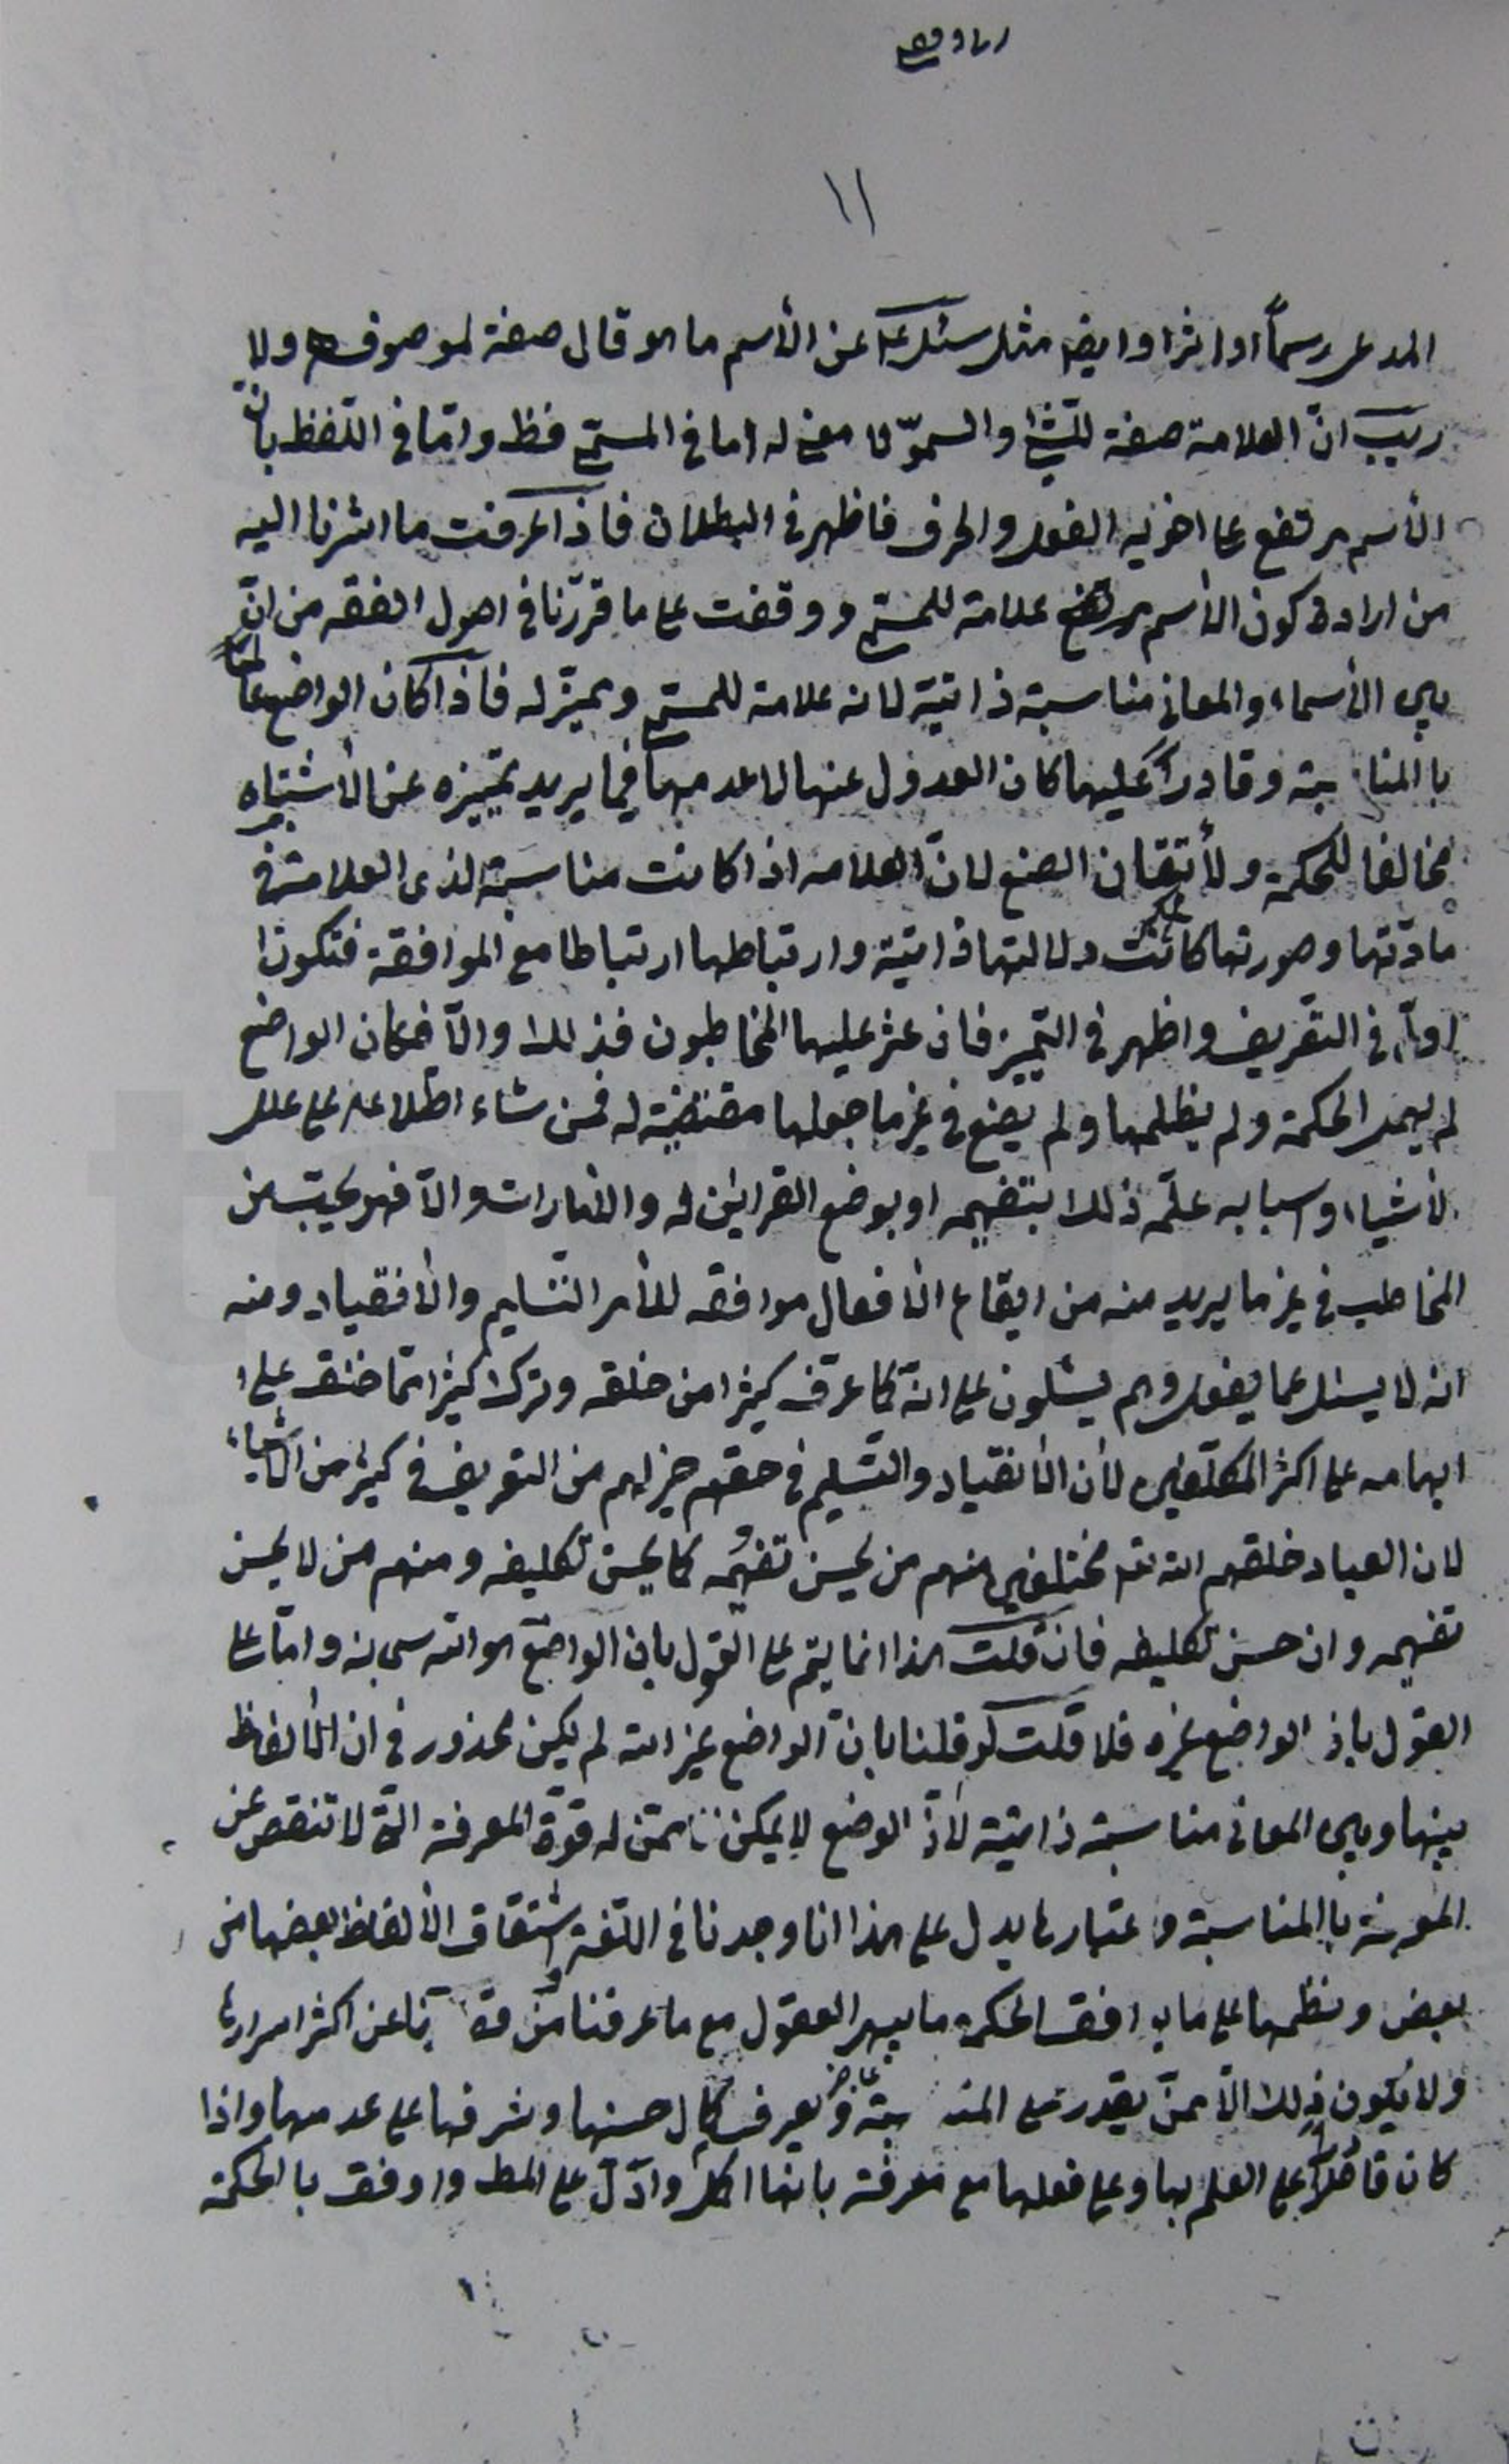 ١١
المدعى رسماً او اثرا وايضا مثل سئل ع عن الأسم ما هو قال صفة لموصوف ولا
ريب انّ العلامة صفة للشئ والسموّ لا معنى له اما في المسمّى فظ وامّا في اللفظ بانّ
الأسم مرتفع على اخويه الفعل والحرف فاظهر في البطلان فاذا عرفت ما اشرنا اليه
من ارادة كون الأسم علامة للمسمّى ووقفت على ما قرّرنا في اصول الفقه من انّ
بين الأسماء والمعاني مناسبة ذاتيّة لانه علامة للمسمى ومميّز له فاذا كان الواضع عالما
باالمناسبة وقادراً عليها كان العدول عنها لا عدمها فيما يريد تمييزه عن الأشتباه
مخالفا للحكمة ولأتقان الصنع لانّ العلامه اذا كانت مناسبة لذى العلامة في
مادّتها وصورتها كانت دلالتها ذاتيّة وارتباطها ارتباطا مع الموافقة فتكون
اولى في التعريف واظهر في التمييز فان عثر عليها المخاطبون فذلك والاّ فكان الواضع
لم يهمل الحكمة ولم يظلمها ولم يضع في غير ما جعلها مقتضية له فمن شاء اطلاعه على علل
لأشياء واسبابه علّمه ذلك بتفهيمه او بوضع القراين له والامارات والاّ فهو يحبّ من
المخاطب في غير ما يريد منه من ايقاع الأفعال موافقه للأمر التسليم والأنقياد ومنه
انه لا يسئل عما يفعل وهم يسئلون على انّه كما عرّف كثيرا من خلقه وترك كثيرا مما خلق على
ابهامه على اكثر المكلّفين لأن الأنقياد والتسليم في حقهم خير لهم من التعريف في كثير من الأشياء
لان العباد خلقهم الله تعـ مختلفين منهم من يحسن تفهيمه كما يحسن تكليفه ومنهم من لا يحسن
تفهيمه وان حسن تكليفه فان قلت هذا انما يتم على القول بان الواضع هو الله سبحانه وامّا على
القول بان الواضع غيره فلا قلت لو قلنا بانّ الواضع غير الله لم يكن محذور في ان الألفاظ
بينها وبين المعانى مناسبة ذاتيّة لأنّ الوضع لا يمكن ممّن له قوّة المعرفة الّا لا تنقص عن
المعرفة باالمناسبة واعتبارها يدل على هذا انا وجدنا في اللّغة اشتقاق الألفاظ بعضها من
بعض ونظمها على ما يوافق الحكمة ما يبهر العقول مع ما عرفنا من عن اكثر اسرارها
ولا يكون ذلك الاّ ممّن يقدر على المناسبة ويعرف كمال حسنها وشرفها على عدمها واذا
كان قادراً على العلم بها وعلى فعلها مع معرفة بانها اكمل وادلّ على المطـ واوفق باالحكمة